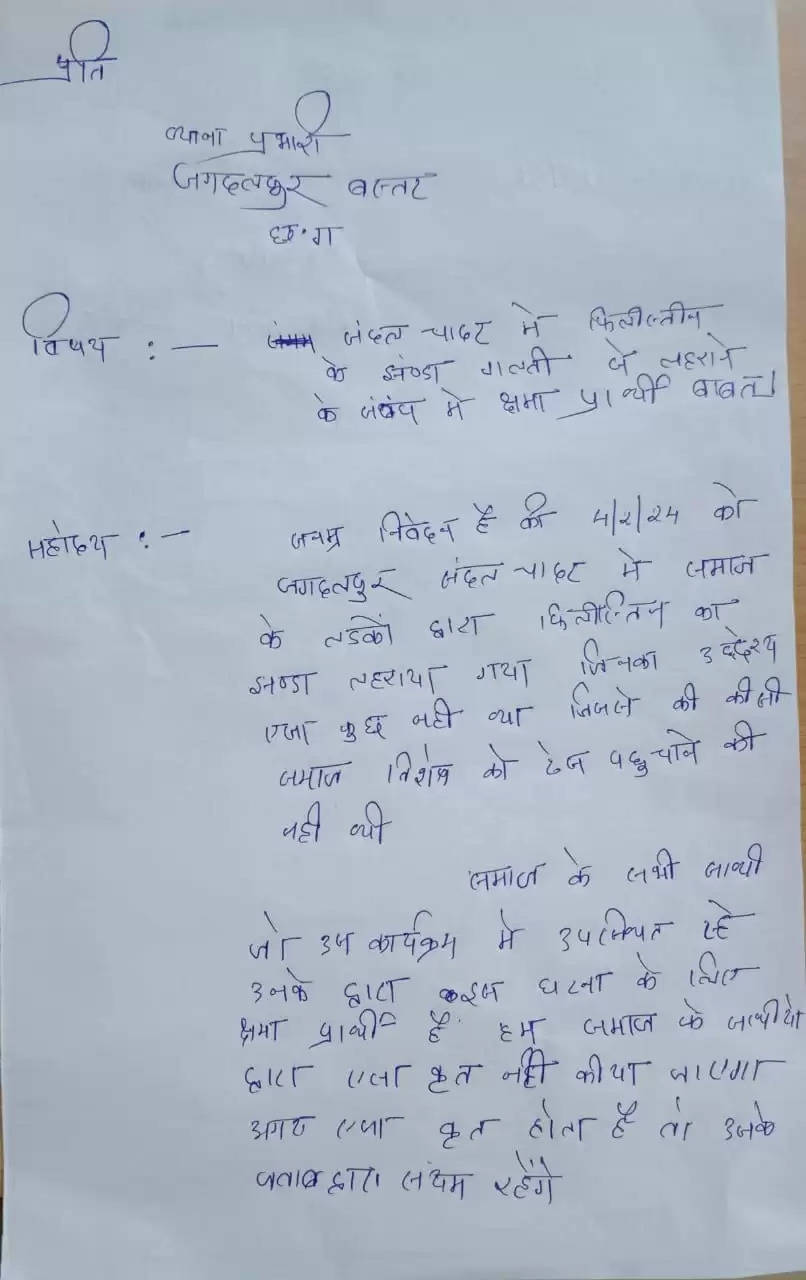 प्रति
थाना प्रभारी
जगदलपुर बस्तर
छ.ग
विषय :— संदल चादर मे फिलीस्तीन
के झण्डा गलती से लहराने
के संबंध मे क्षमा प्रार्थी बाबत।
महोदय :— सनम्र निवेदन है की 4/2/24 को
जगदलपुर संदल चादर मे समाज
के लडकों द्वारा फिलीस्तिन का
झण्डा लहराया गया जिनका उद्देश्य
एसा कुछ नही था जिससे की कीसी
समाज विशेष को ठेस पहुचाने की
नही थी
समाज के सभी साथी
जो उस कार्यक्रम मे उपस्थित रहे
उनके द्वारा इस घटना के लिए
क्षमा प्रार्थी है हम समाज के साथीयो
द्वारा एसा कृत नही कीया जाएगा
अगर एसा कृत होता है तो उसके
द्वारा रहेंगे